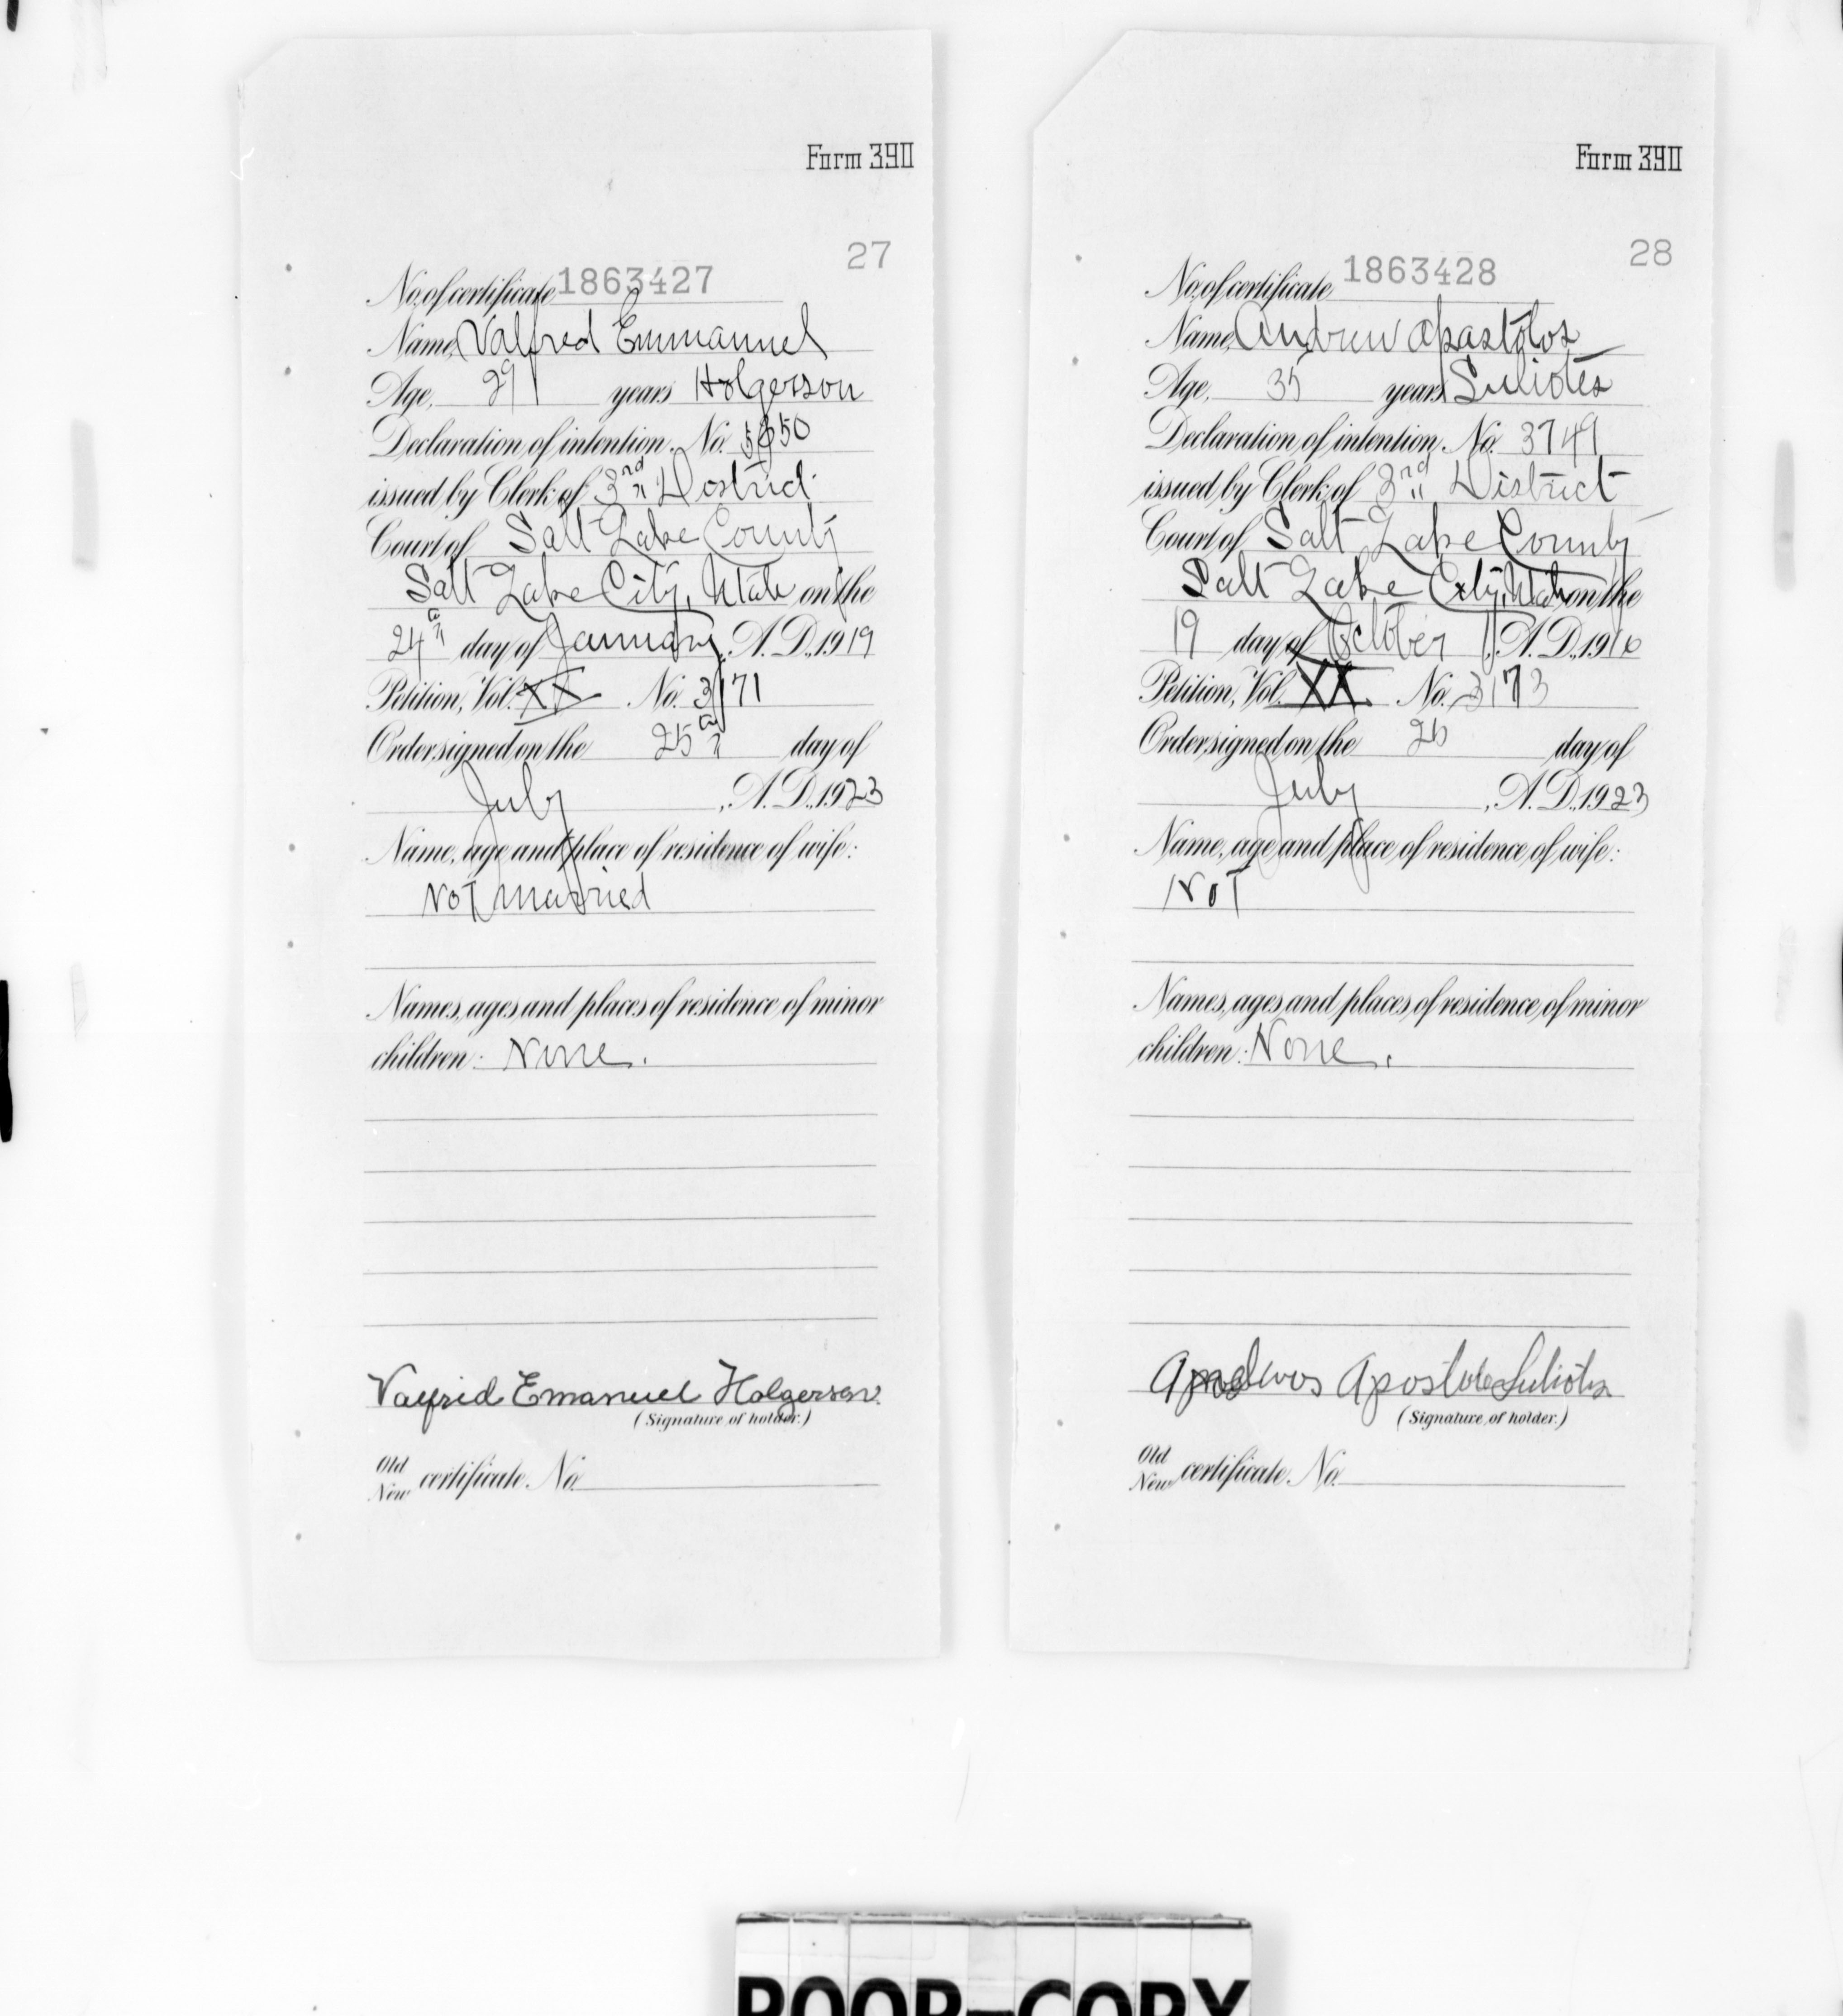 Form 390
27
No. of certificate 1863427
Name, Valfred Emmanuel
Age, 29 years Holgerson
Declaration of intention, No. 5650
issued by Clerk of 3rd Dostrict
Court of Salt Lake County
Salt Lake City, Utah on the
24 day of January, A.D. 1919
Petition, Vol. XX No. 3171
Order signed on the 25 day of
July, A.D. 1923
Name, age and place of residence of wife:
NOT Married
Names, ages and places of residence of minor
children: None.
Valfrid Emanuel Holgerson.
(Signature of holder.)
Old
New certificate No.
Form 390
28
No. of certificate 1863428
Name, Andrew Apastolos
Age, 35 years Suliotes
Declaration of intention, No. 3749
issued by Clerk of 3rd District
Court of Salt Lake County
Salt Lake City, Utah on the
19 day of October, A.D. 1916
Petition, Vol. XX No. 3173
Order signed on the 25 day of
July, A.D. 1923
Name, age and place of residence of wife:
NOT
Names, ages and places of residence of minor
children: None.
Apostolos Suliotis
(Signature of holder.)
Old
New certificate No.
POOR-COPY